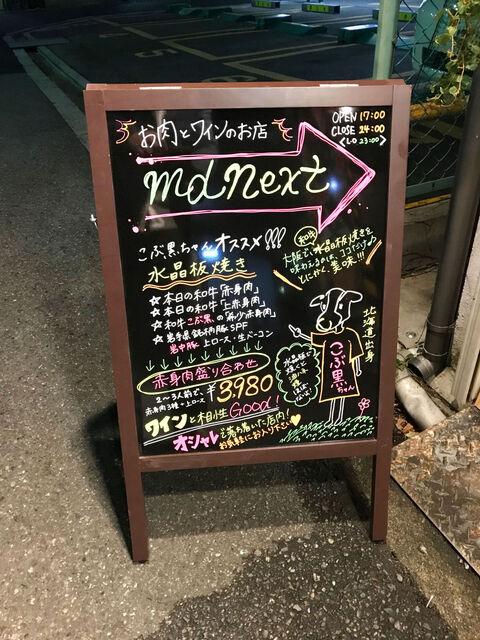 お肉とワインのお店
OPEN 17:00
CLOSE 24:00
<LO 23:00>
md next
こぶ黒ちゃんオススメ!!!
水晶板焼き
☆本日の和牛「赤身肉」
☆本日の和牛「上赤身肉」
☆和牛こぶ黒の「希少赤身肉」
☆岩手県銘柄豚SPF
岩中豚 上ロース・生ベーコン
和牛
大阪で、水晶板焼きを
味わえるのは、ココだけ♪
とにかく、美味!!!
↓↓↓↓↓↓↓↓
赤身肉盛り合わせ
2〜3人前で、
赤身肉3種+上ロース
¥3,980
ワインと相性GOOd!
オシャレで落ち着いた店内!
お気軽にお入り下さい♥
水晶板で
焼くと
油ハネ
煙
ほぼ
ないよ!
北海道出身
こぶ黒ちゃん